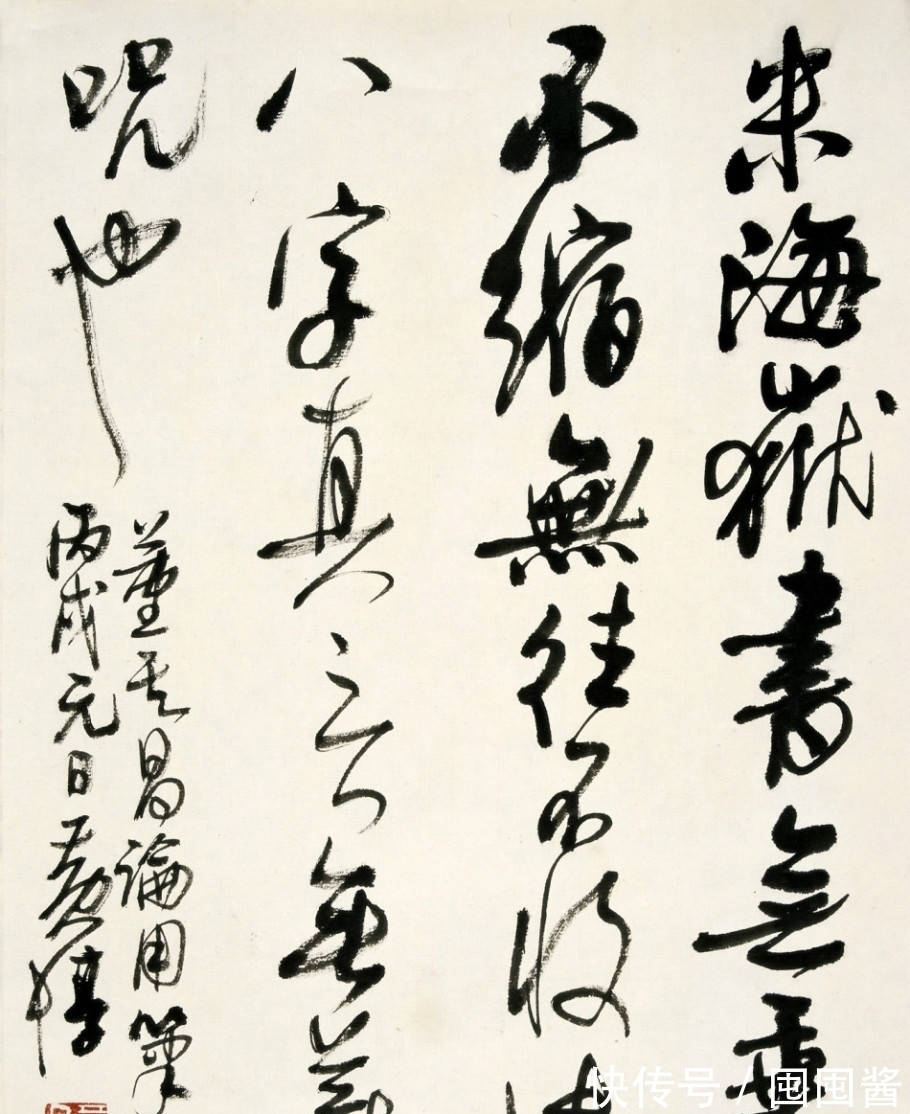 米海嶽書無垂
不縮無往不收
八字真言無等
呪也
董其昌論用筆
丙戌元日黃惇
快传号 / 囤囤酱